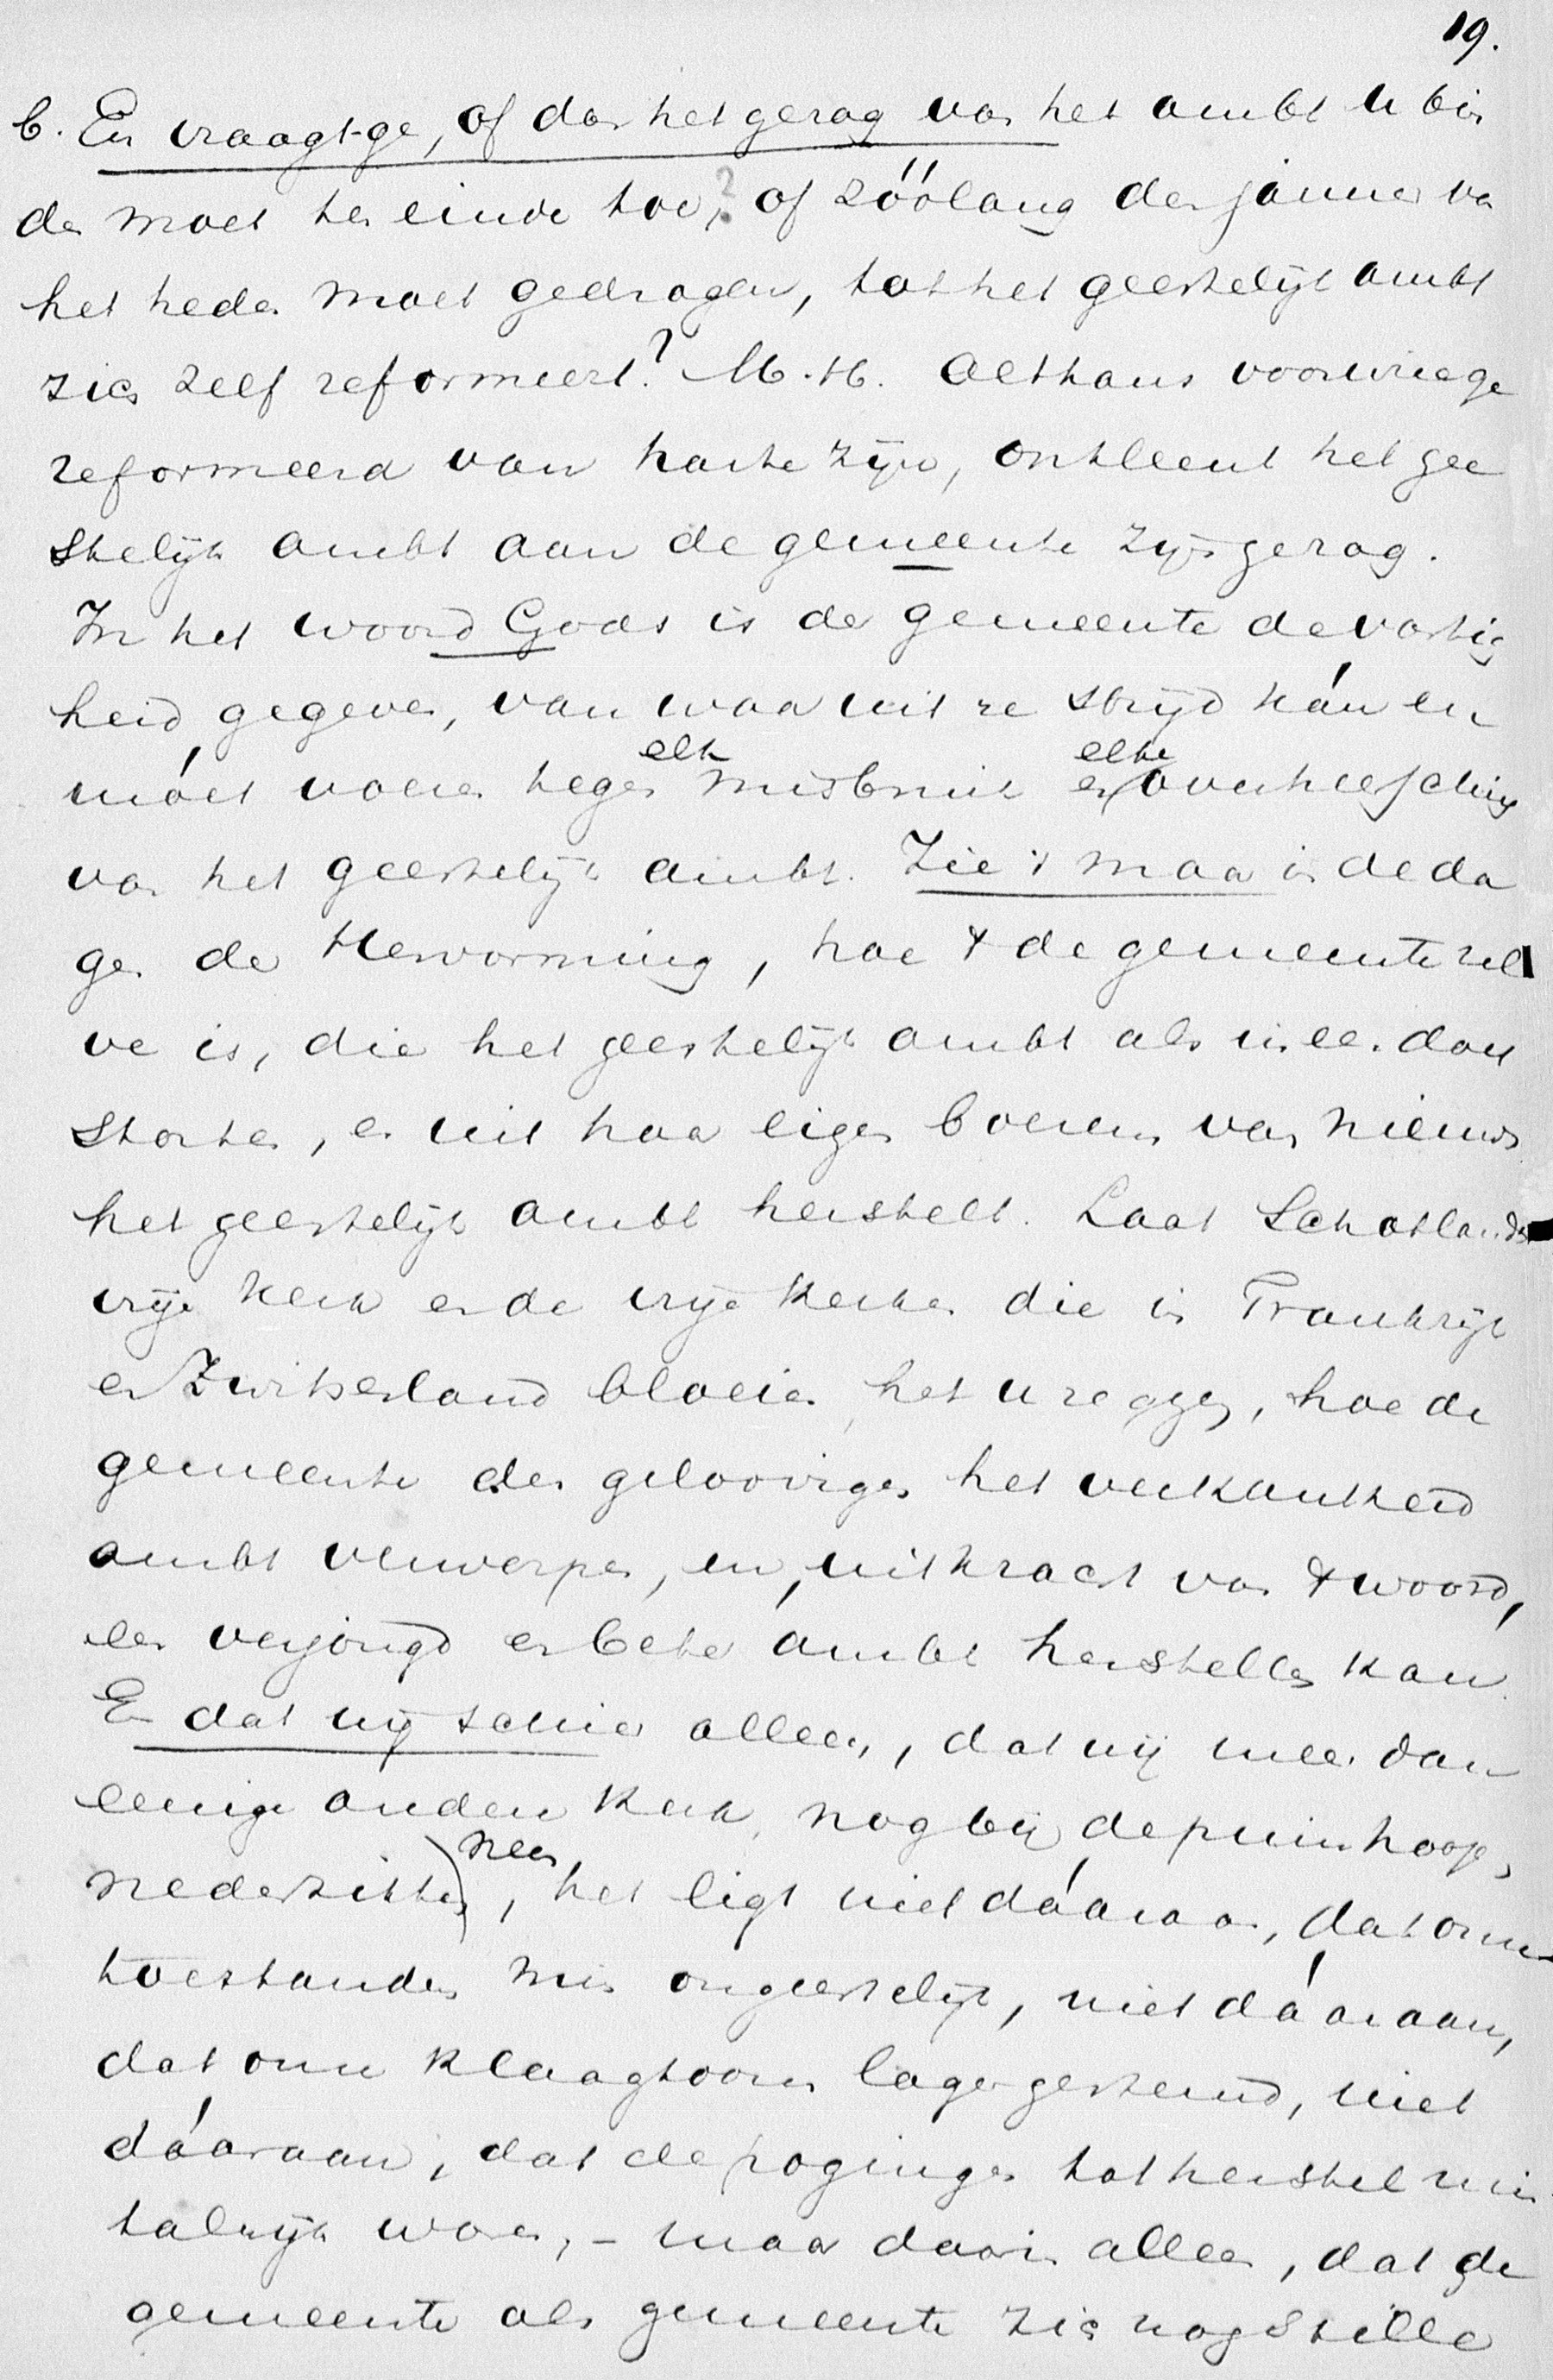 19.
b. En vraagt-ge, of dan het gezag van het ambt u bin
den moet ten einde toe,? of zóólang de jammer van
het heden moet gedragen, tot het geestelijk ambt
zich zelf reformeert? M.H. Althans voor wie ge
reformeerd van harte zijn, ontleent het gee
stelijk ambt aan de gemeente zijn gezag.
In het woord Gods is de gemeente de vastig
heid gegeven, van waar uit ze strijd kán en
elk elke
móet voeren tegen misbruik en overheersching
van het geestelijk ambt. Zie 't maar in de da
gen der Hervorming, hoe 't de gemeente zel
ve is, die het geestelijk ambt als ineen doet
storten, en uit haar eigen boezem van nieuws
het geestelijk ambt herstelt. Laat Schotlands
vrije kerk en de vrije kerken die in Frankrijk
en Zwitserland bloeien het u zeggen, hoe de
gemeente der geloovigen het verkankerd
ambt verwerpen, en, uit kracht van 't woord,
een verjongd en beter ambt herstellen kan.
En dat wij schier alleen, dat wij meer dan
eenige andere kerk, nog bij de puinhoopen
neen,
nederzitten), het ligt niet dááraan, dat onze
toestanden min ongeestelijk, niet dááraan,
dat onze klaagtoon lager gestemd, niet
dááraan, dat de pogingen tot herstel min
talrijk waren, – maar daarin alleen, dat de
gemeente als gemeente zich nog stille